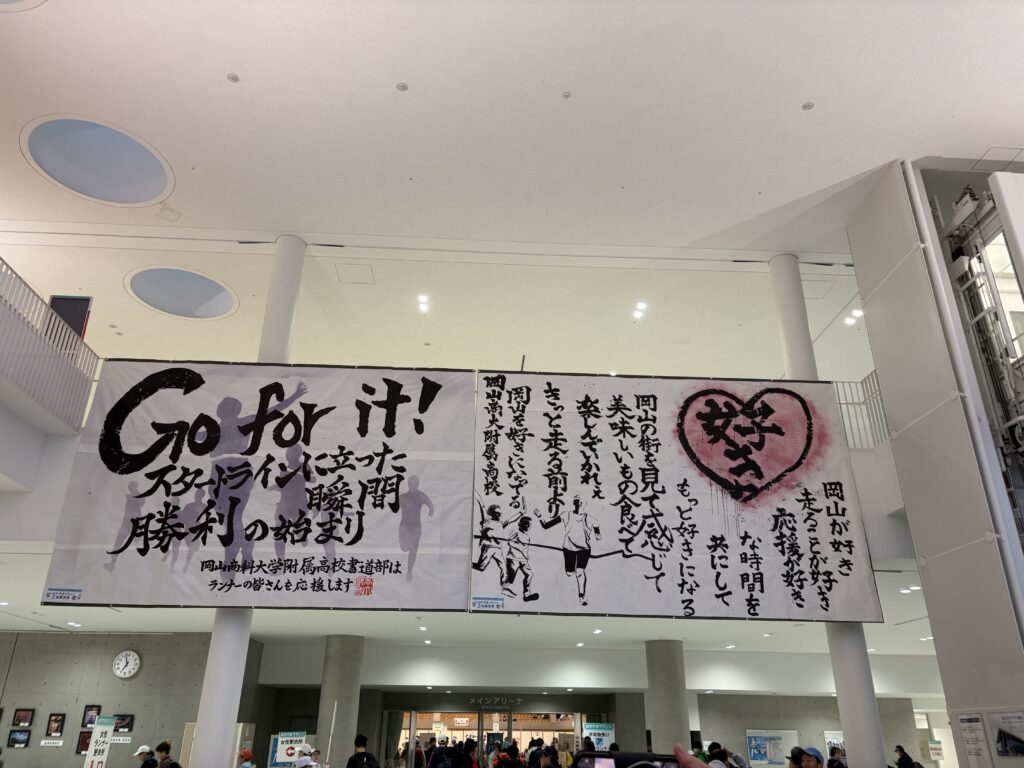 Go for it!
スタートラインに立った
瞬間
勝利の始まり
岡山商科大学附属高校書道部は
ランナーの皆さんを応援します
好き
岡山が好き
走ることが好き
応援が好き
共にして
な時間を
もっと好きになる
岡山の街を見て感じて
美味しいもの食べて
楽しんでいかれぇ
きっと走る前より
岡山を好きになってる
岡山商大附属高校
メインアリーナ
MAIN ARENA
女性更衣所